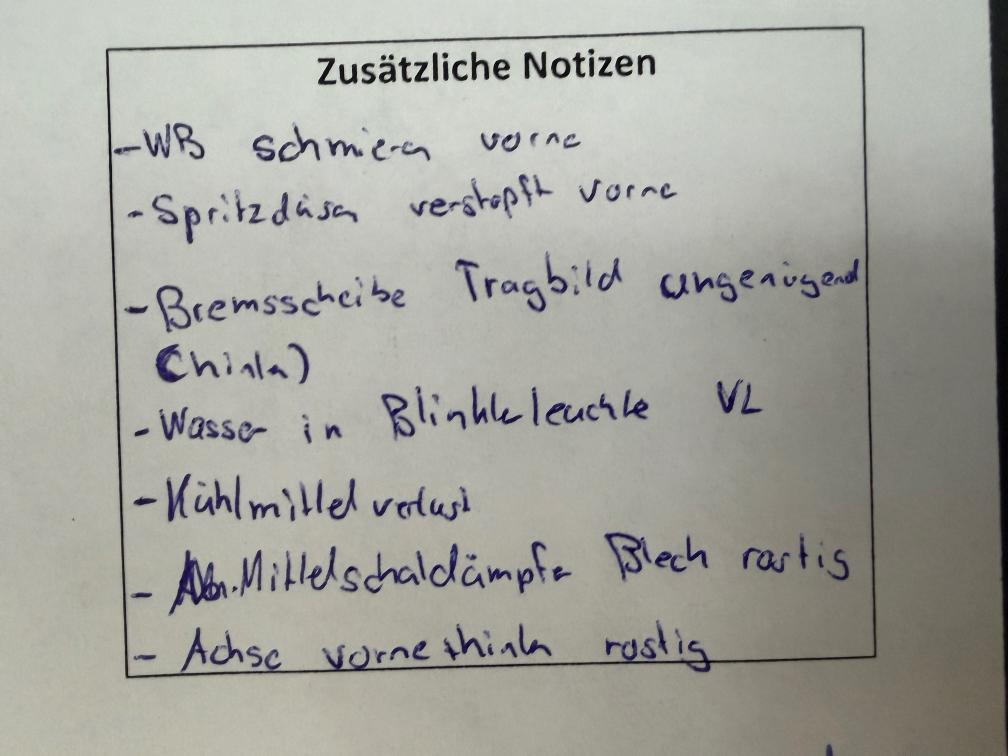 Zusätzliche Notizen
- WB schmieren vorne
- Spritzdüsen verstopft vorne
- Bremsscheibe Tragbild ungenügend
(hinten)
- Wasser in Blinkleleuchte VL
- Kühlmittelverlust
- Mittelschaldämpfer Blech rostig
- Achse vorne + hinten rostig